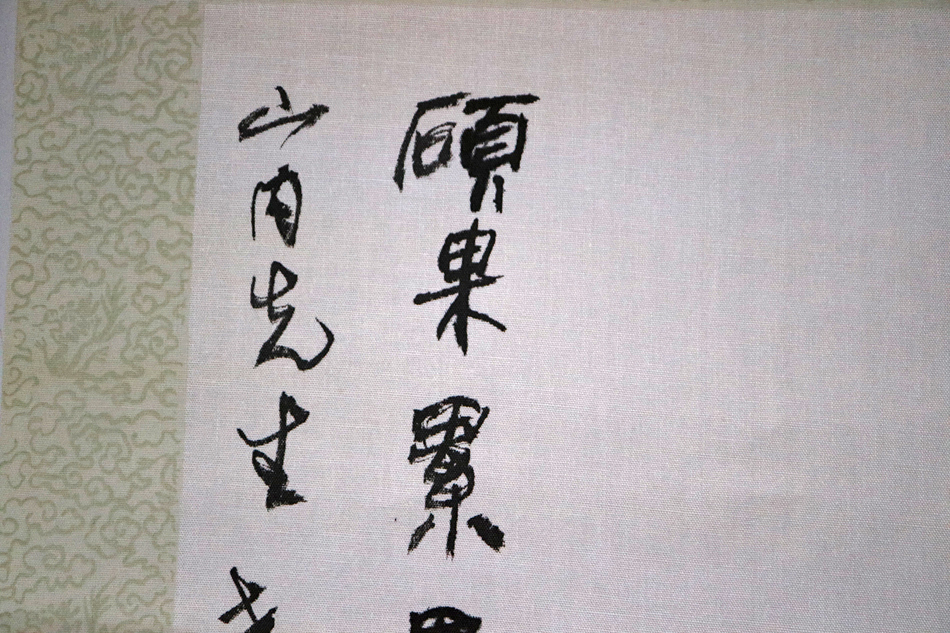 碩果累
山内先生